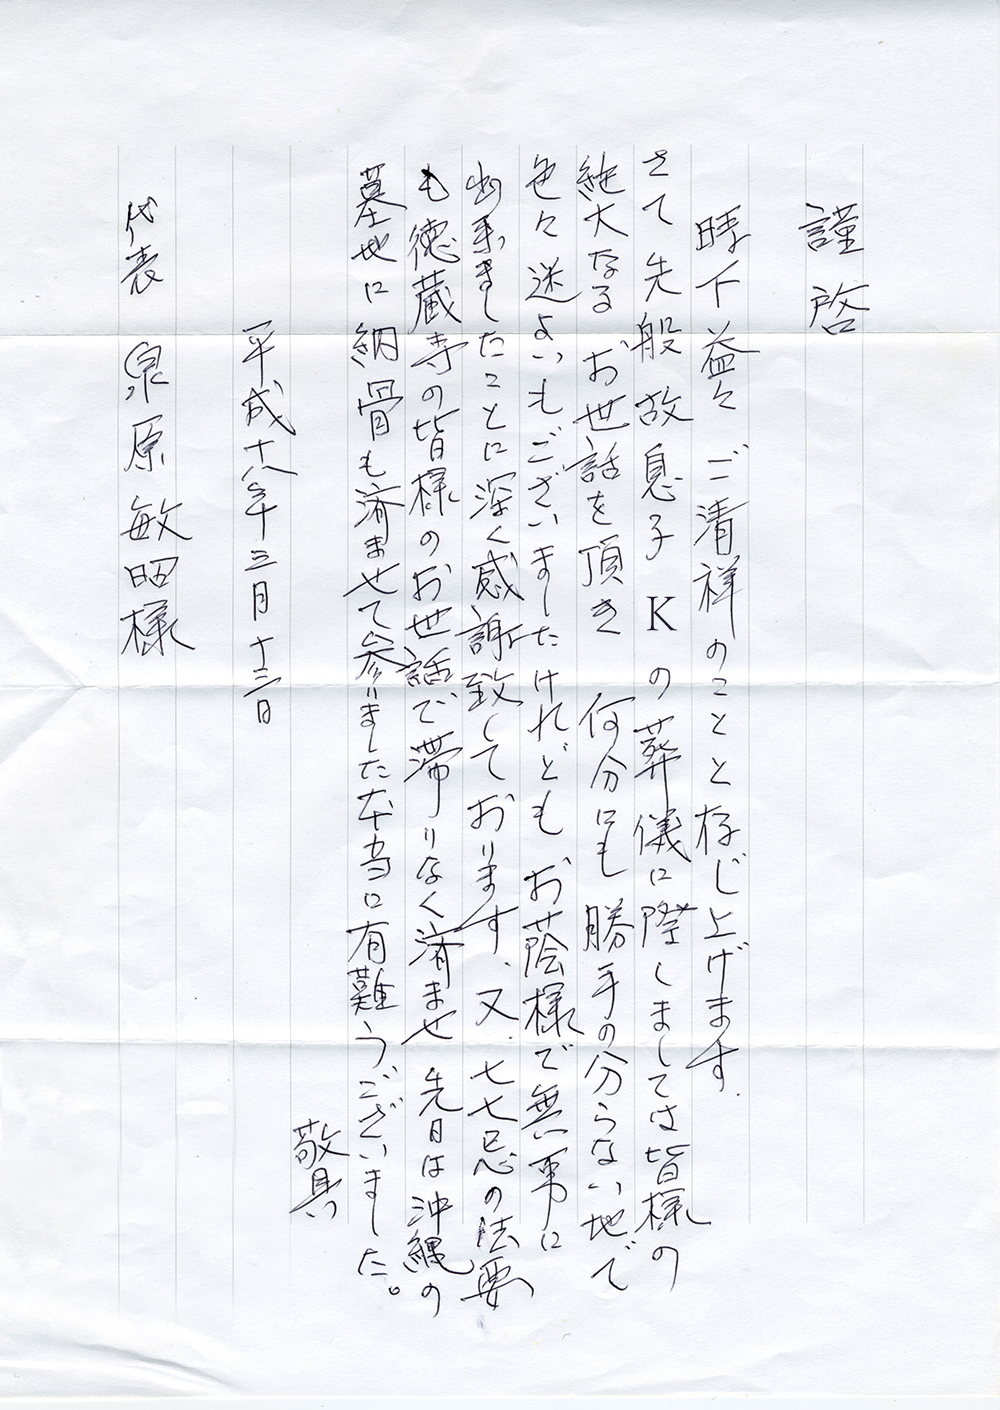 謹啓
時下益々ご清祥のことと存じ上げます.
さて先般故息子Kの葬儀に際しましては皆様の
絶大なるお世話を頂き 何分にも勝手の分らない地で
色々迷よいもございましたけれども お蔭様で無事に
出来ましたことに深く感謝致しております.又.七七忌の法要
も徳蔵寺の皆様のお世話で滞りなく済ませ 先日は沖縄の
墓地に納骨も済ませて参りました本当に有難うございました。
敬具
平成十八年三月十三日
代表 泉原敏昭様